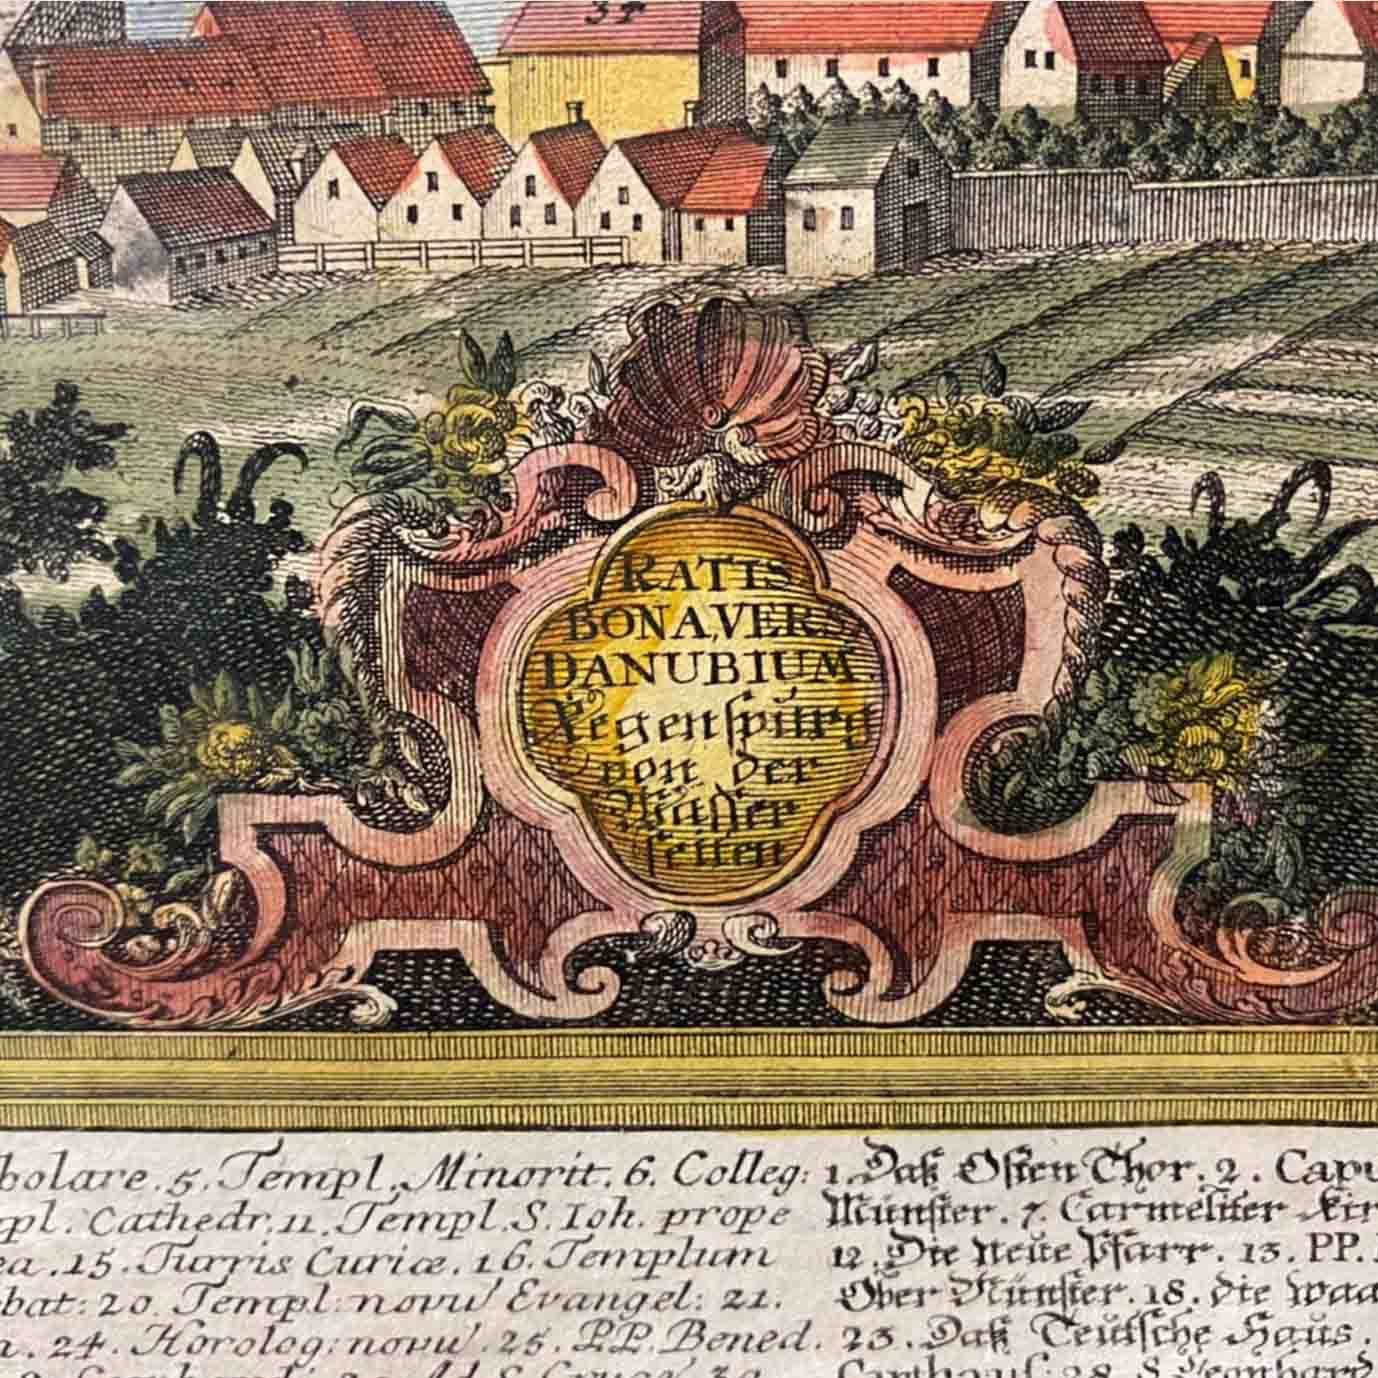 34
RATIS
BONA, VERS
DANUBIUM.
Regenspurg
von der
Wasser
seiten
bolare. 5. Templ. Minorit. 6. Colleg:
pl. Cathedr. 11. Templ. S. Ioh. prope
ea. 15. Turris Curiæ. 16. Templum
bat: 20. Templ: novu' Evangel: 21.
24. Horolog: novu'. 25. P.P. Bened.
1. Daß Osten Thor. 2. Capu
Münster. 7. Carmeliter Kir
12. Die Neue Pfarr. 13. PP.
Ober Münster. 18. die waa
23. Daß Teutsche Haus.
Carthaus: 28. S. Leonhard